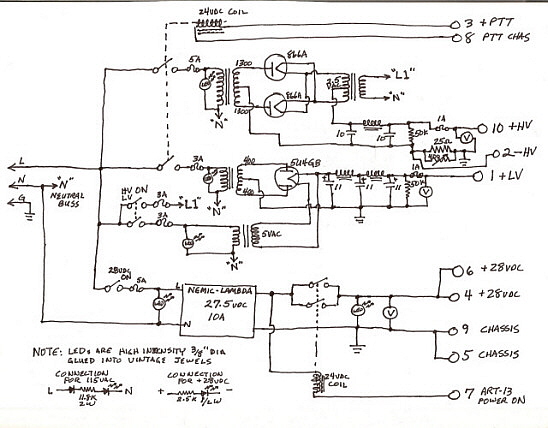 24VDC COIL
3 +PTT
8 PTT CHAS
5A
1300
1300
866A
866A
2.5
"L1"
"N"
"N"
10
10
50K
1A
25Ω
V
10 +HV
2 -HV
1 +LV
L
N
G
"N"
NEUTRAL
BUSS
3A
400
400
5U4GB
"N"
11
11
11
1A
50K
V
HV ON
LV
3A
"L1"
3A
5VAC
"N"
28VDC
ON
5A
L
N
NEMIC-LAMBDA
27.5VDC
10A
V
6 +28VDC
4 +28VDC
9 CHASSIS
5 CHASSIS
24VDC
COIL
7 ART-13
POWER ON
NOTE: LEDs ARE HIGH INTENSITY 3/8" DIA
GLUED INTO VINTAGE JEWELS
CONNECTION
FOR 115VAC
L
N
11.8K
2W
CONNECTION
FOR +28VDC
+
-
2.5K
1/2W